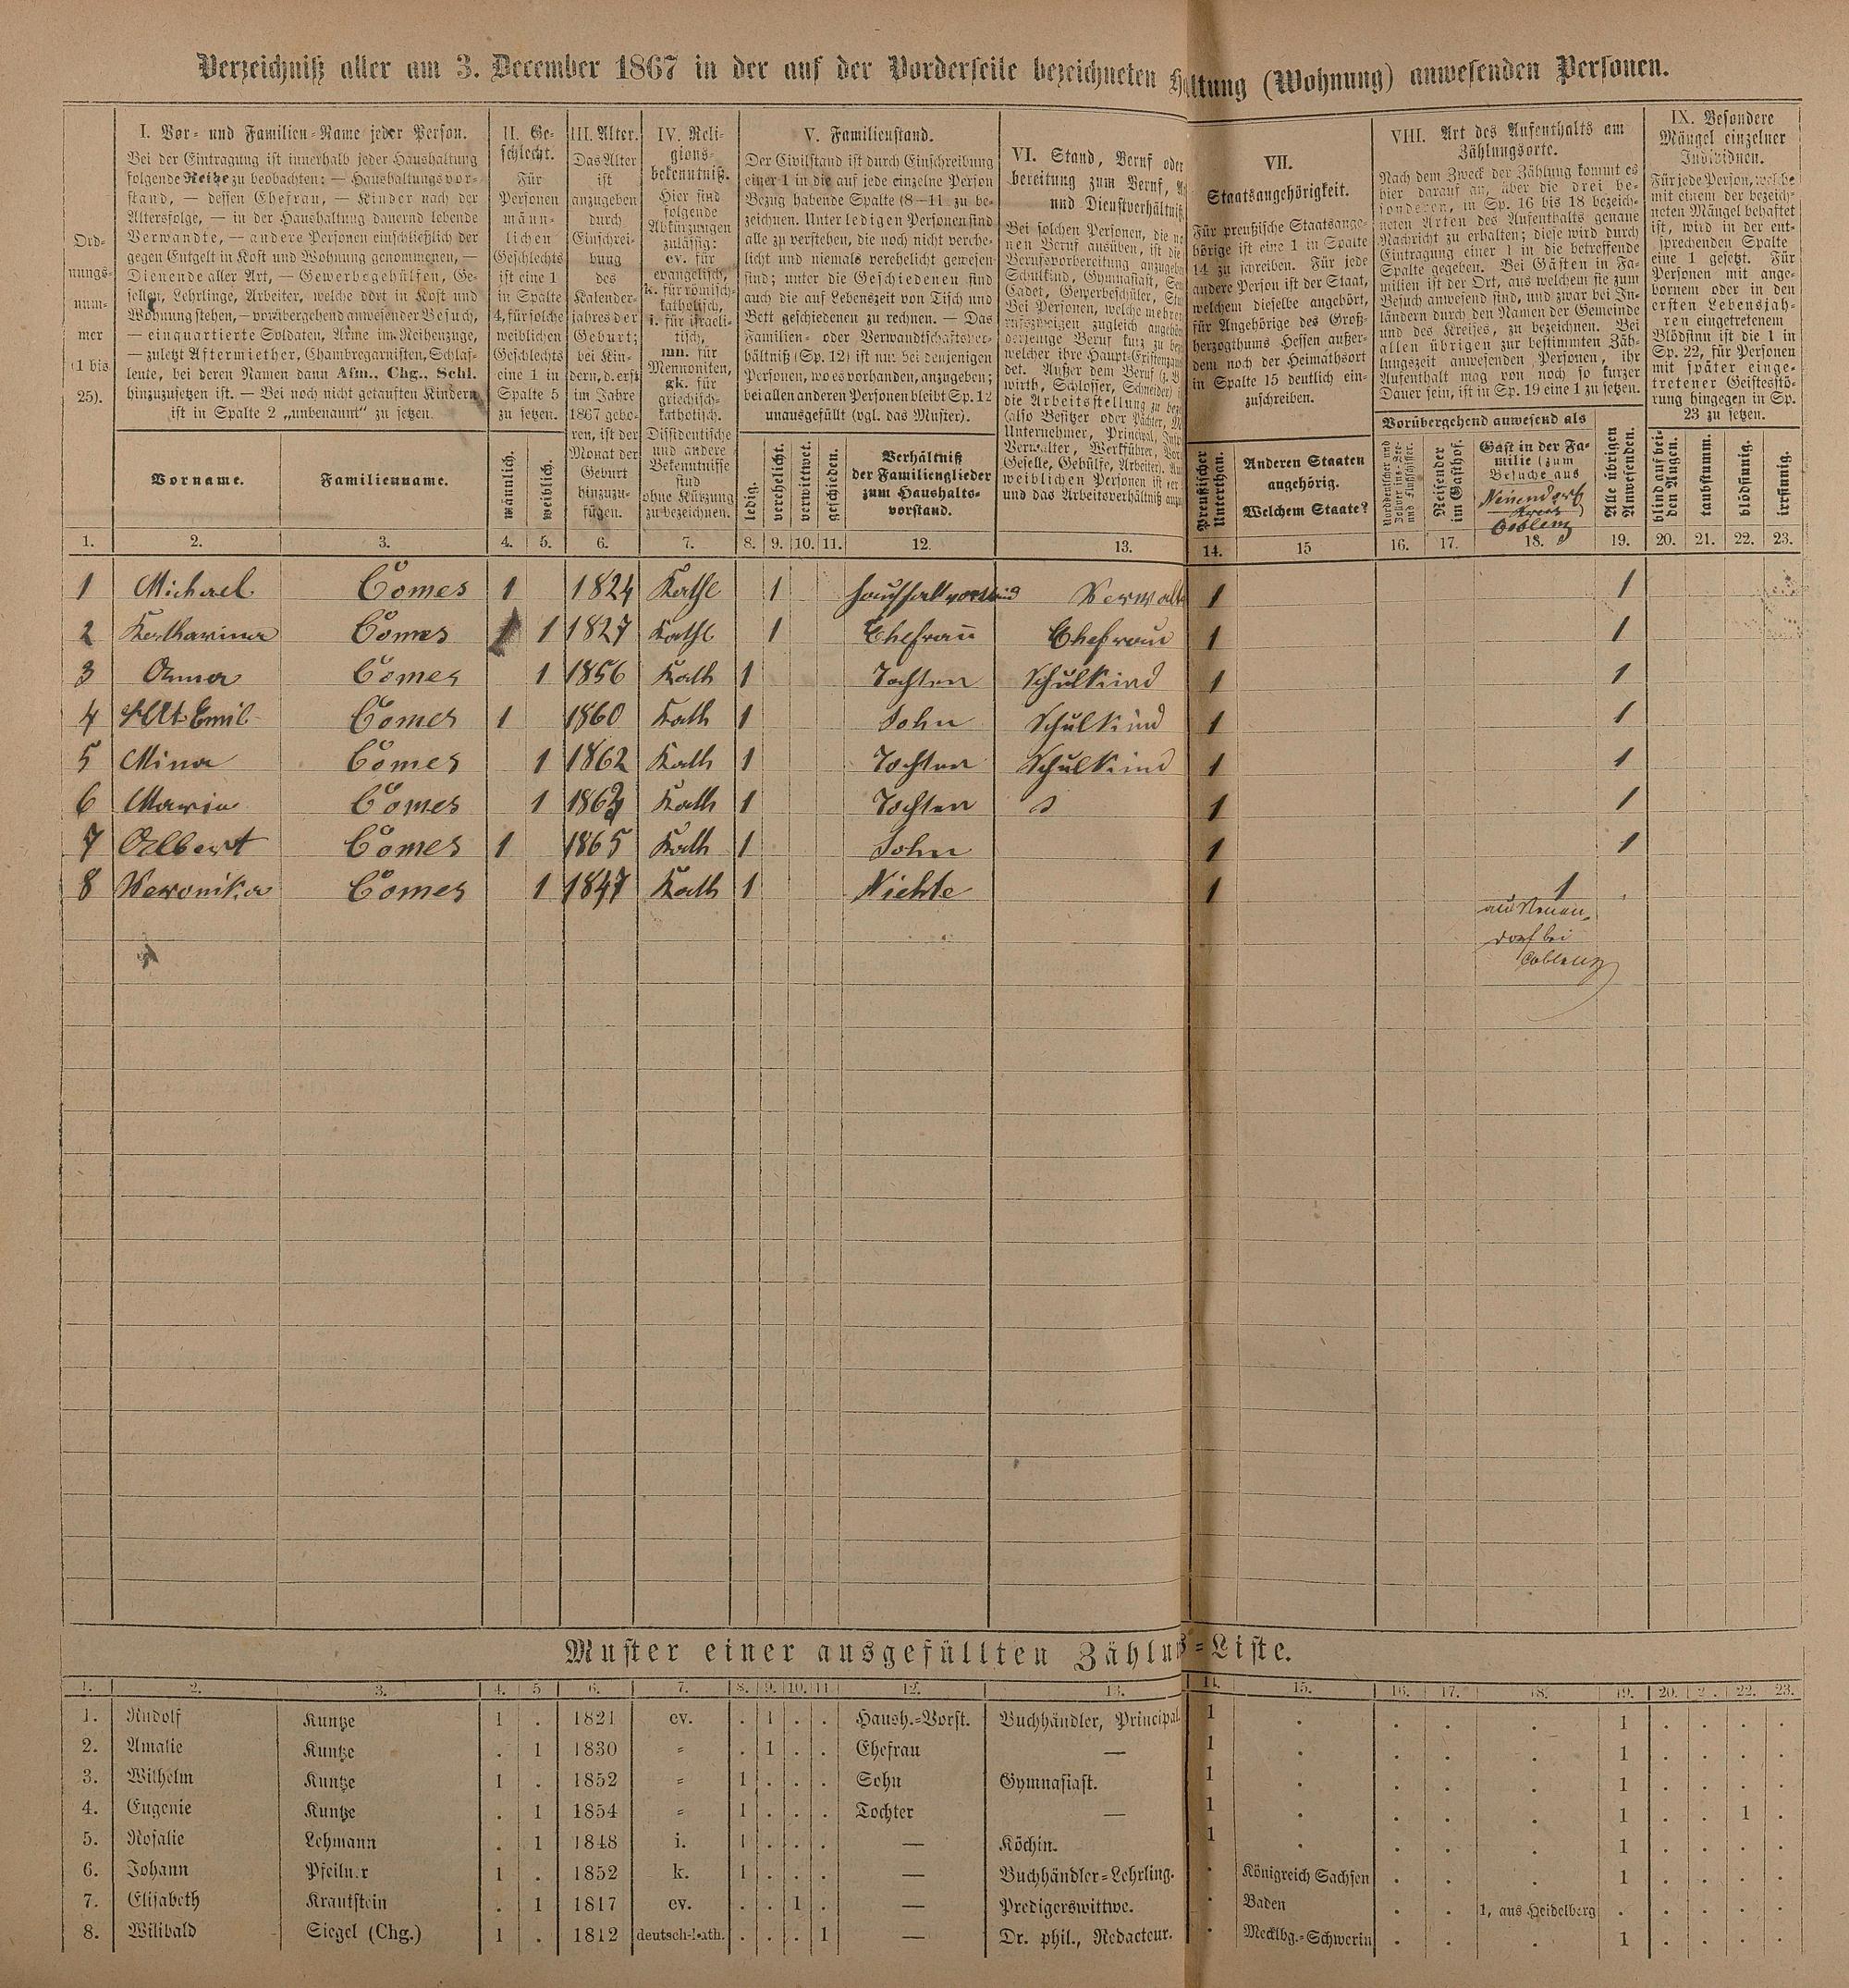 Verzeichniß aller am 3. December 1867 in der auf der Vorderseite bezeichneten Haltung (Wohnung) anwesenden Personen.
Ord-
nungs-
num-
mer
(1 bis
25).
I. Vor- und Familien-Name jeder Person.
Bei der Eintragung ist innerhalb jeder Haushaltung
folgende Reihe zu beobachten: — Haushaltungsvor-
stand, — dessen Ehefrau, — Kinder nach der
Altersfolge, — in der Haushaltung dauernd lebende
Verwandte, — andere Personen einschließlich der
gegen Entgelt in Kost und Wohnung genommenen, —
Dienende aller Art, — Gewerbegehülfen, Ge-
sellen, Lehrlinge, Arbeiter, welche dort in Kost und
Wohnung stehen, — vorübergehend anwesender Besuch,
— einquartierte Soldaten, Arme im Reihenzuge,
— zuletzt Aftermiether, Chambregarnisten, Schlaf-
leute, bei deren Namen dann Afm., Chg., Schl.
hinzuzusetzen ist. — Bei noch nicht getauften Kindern
ist in Spalte 2 „unbenannt" zu setzen.
Vorname.
Familienname.
II. Ge-
schlecht.
Für
Personen
männ-
lichen
Geschlechts
ist eine 1
in Spalte
4, für solche
weiblichen
Geschlechts
eine 1 in
Spalte 5
zu setzen.
männlich.
weiblich.
III. Alter.
Das Alter
ist
anzugeben
durch
Einschrei-
bung
des
Kalender-
jahres der
Geburt;
bei Kin-
dern, d. erst
im Jahre
1867 gebo-
ren, ist der
Monat der
Geburt
hinzuzu-
fügen.
IV. Reli-
gions-
bekenntniß.
Hier sind
folgende
Abkürzungen
zulässig:
ev. für
evangelisch,
k. für römisch-
katholisch,
i. für israeli-
tisch,
mn. für
Mennoniten,
gk. für
griechisch-
katholisch.
Dissidentische
und andere
Bekenntnisse
sind
ohne Kürzung
zu bezeichnen.
V. Familienstand.
Der Civilstand ist durch Einschreibung
einer 1 in die auf jede einzelne Person
Bezug habende Spalte (8—11 zu be-
zeichnen. Unter ledigen Personen sind
alle zu verstehen, die noch nicht verehe-
licht und niemals verehelicht gewesen
sind; unter die Geschiedenen sind
auch die auf Lebenszeit von Tisch und
Bett geschiedenen zu rechnen. — Das
Familien- oder Verwandtschaftsver-
hältniß (Sp. 12) ist nur bei denjenigen
Personen, wo es vorhanden, anzugeben;
bei allen anderen Personen bleibt Sp. 12
unausgefüllt (vgl. das Muster).
ledig.
verehelicht.
verwittwet.
geschieden.
Verhältniß
der Familienglieder
zum Haushalts-
vorstand.
VI. Stand, Beruf oder
bereitung zum Beruf,
und Dienstverhältniß
Bei solchen Personen, die
nen Beruf ausüben, ist die
Berufsvorbereitung
Schulkind, Gymnasiast,
Cadet, Gewerbeschüler,
Bei Personen, welche mehre
rufszweigen zugleich
derjenige Beruf kurz zu
welcher ihre Haupt-
det. Außer dem Beruf
wirth, Schlosser, Schneider)
die Arbeitsstellung zu
(also Besitzer oder Pächter,
Unternehmer, Principal,
Verwalter, Werkführer,
Geselle, Gehülfe, Arbeiter).
weiblichen Personen ist
und das Arbeitsverhältniß
VII.
Staatsangehörigkeit.
Für preußische Staatsange-
hörige ist eine 1 in Spalte
14 zu schreiben. Für jede
andere Person ist der Staat,
welchem dieselbe angehört,
für Angehörige des Groß-
herzogthums Hessen außer-
dem noch der Heimathsort
in Spalte 15 deutlich ein-
zuschreiben.
Preußischer
Unterthan.
Anderen Staaten
angehörig.
Welchem Staate?
VIII. Art des Aufenthalts am
Zählungsorte.
Nach dem Zweck der Zählung kommt es
hier darauf an, über die drei be-
sonderen, in Sp. 16 bis 18 bezeich-
neten Arten des Aufenthalts genaue
Nachricht zu erhalten; diese wird durch
Eintragung einer 1 in die betreffende
Spalte gegeben. Bei Gästen in Fa-
milien ist der Ort, aus welchem sie zum
Besuch anwesend sind, und zwar bei In-
ländern durch den Namen der Gemeinde
und des Kreises, zu bezeichnen. Bei
allen übrigen zur bestimmten Zäh-
lungszeit anwesenden Personen, ihr
Aufenthalt mag von noch so kurzer
Dauer sein, ist in Sp. 19 eine 1 zu setzen.
Vorübergehend anwesend als
Reisender
im Gasthof.
Gast in der Fa-
milie (zum
Besuche aus
Neuendorf
Kreis
Coblenz
Alle übrigen
Anwesenden.
IX. Besondere
Mängel einzelner
Individuen.
Für jede Person, welche
mit einem der bezeich-
neten Mängel behaftet
ist, wird in der ent-
sprechenden Spalte
eine 1 gesetzt. Für
Personen mit ange-
bornem oder in den
ersten Lebensjah-
ren eingetretenem
Blödsinn ist die 1 in
Sp. 22, für Personen
mit später einge-
tretener Geistesstö-
rung hingegen in Sp.
23 zu setzen.
blind auf bei-
den Augen.
taubstumm.
blödsinnig.
irrsinnig.
1. 2. 3. 4. 5. 6. 7. 8. 9. 10. 11. 12. 13. 14. 15 16. 17. 18. 19. 20. 21. 22. 23.
1 Michael Cömes 1 1824 Kathl 1 Haushaltvorstand Verwalt 1 1
2 Katharina Cömes 1 1827 Kathl 1 Ehefrau Ehefrau 1 1
3 Anna Cömes 1 1856 Kath 1 Tochter Schulkind 1 1
4 Emil Cömes 1 1860 Kath 1 Sohn Schulkind 1 1
5 Mina Cömes 1 1862 Kath 1 Tochter Schulkind 1 1
6 Maria Cömes 1 Kath 1 Tochter 1 1
7 Albert Cömes 1 1865 Kath 1 Sohn 1 1
8 Veronika Cömes 1 1847 Kath 1 Nichte 1 1
aus Neuen-
dorf bei
Coblenz
Muster einer ausgefüllten Zählungs-Liste.
1. 2. 3. 4. 5 6. 7. 8. 9. 10. 11 12. 13. 14. 15. 16. 17. 18. 19. 20. 2 . 22. 23.
1. Rudolf Kuntze 1 . 1821 ev. . 1 . . Haush.-Vorst. Buchhändler, Principal. 1 . . . . 1 . . . .
2. Amalie Kuntze . 1 1830 " . 1 . . Ehefrau — 1 . . . . 1 . . . .
3. Wilhelm Kuntze 1 . 1852 " 1 . . . Sohn Gymnasiast. 1 . . . . 1 . . . .
4. Eugenie Kuntze . 1 1854 " 1 . . . Tochter — 1 . . . . 1 . . 1 .
5. Rosalie Lehmann . 1 1848 i. 1 . . . — Köchin. 1 . . . . 1 . . . .
6. Johann Pfeiln.r 1 . 1852 k. 1 . . . — Buchhändler-Lehrling. . Königreich Sachsen . . . 1 . . . .
7. Elisabeth Krautstein . 1 1817 ev. . . 1 . — Predigerswittwe. . Baden . . 1, aus Heidelberg . . . . .
8. Wilibald Siegel (Chg.) 1 . 1812 deutsch-kath. . . . 1 — Dr. phil., Redacteur. . Mecklbg.-Schwerin . . . 1 . . . .